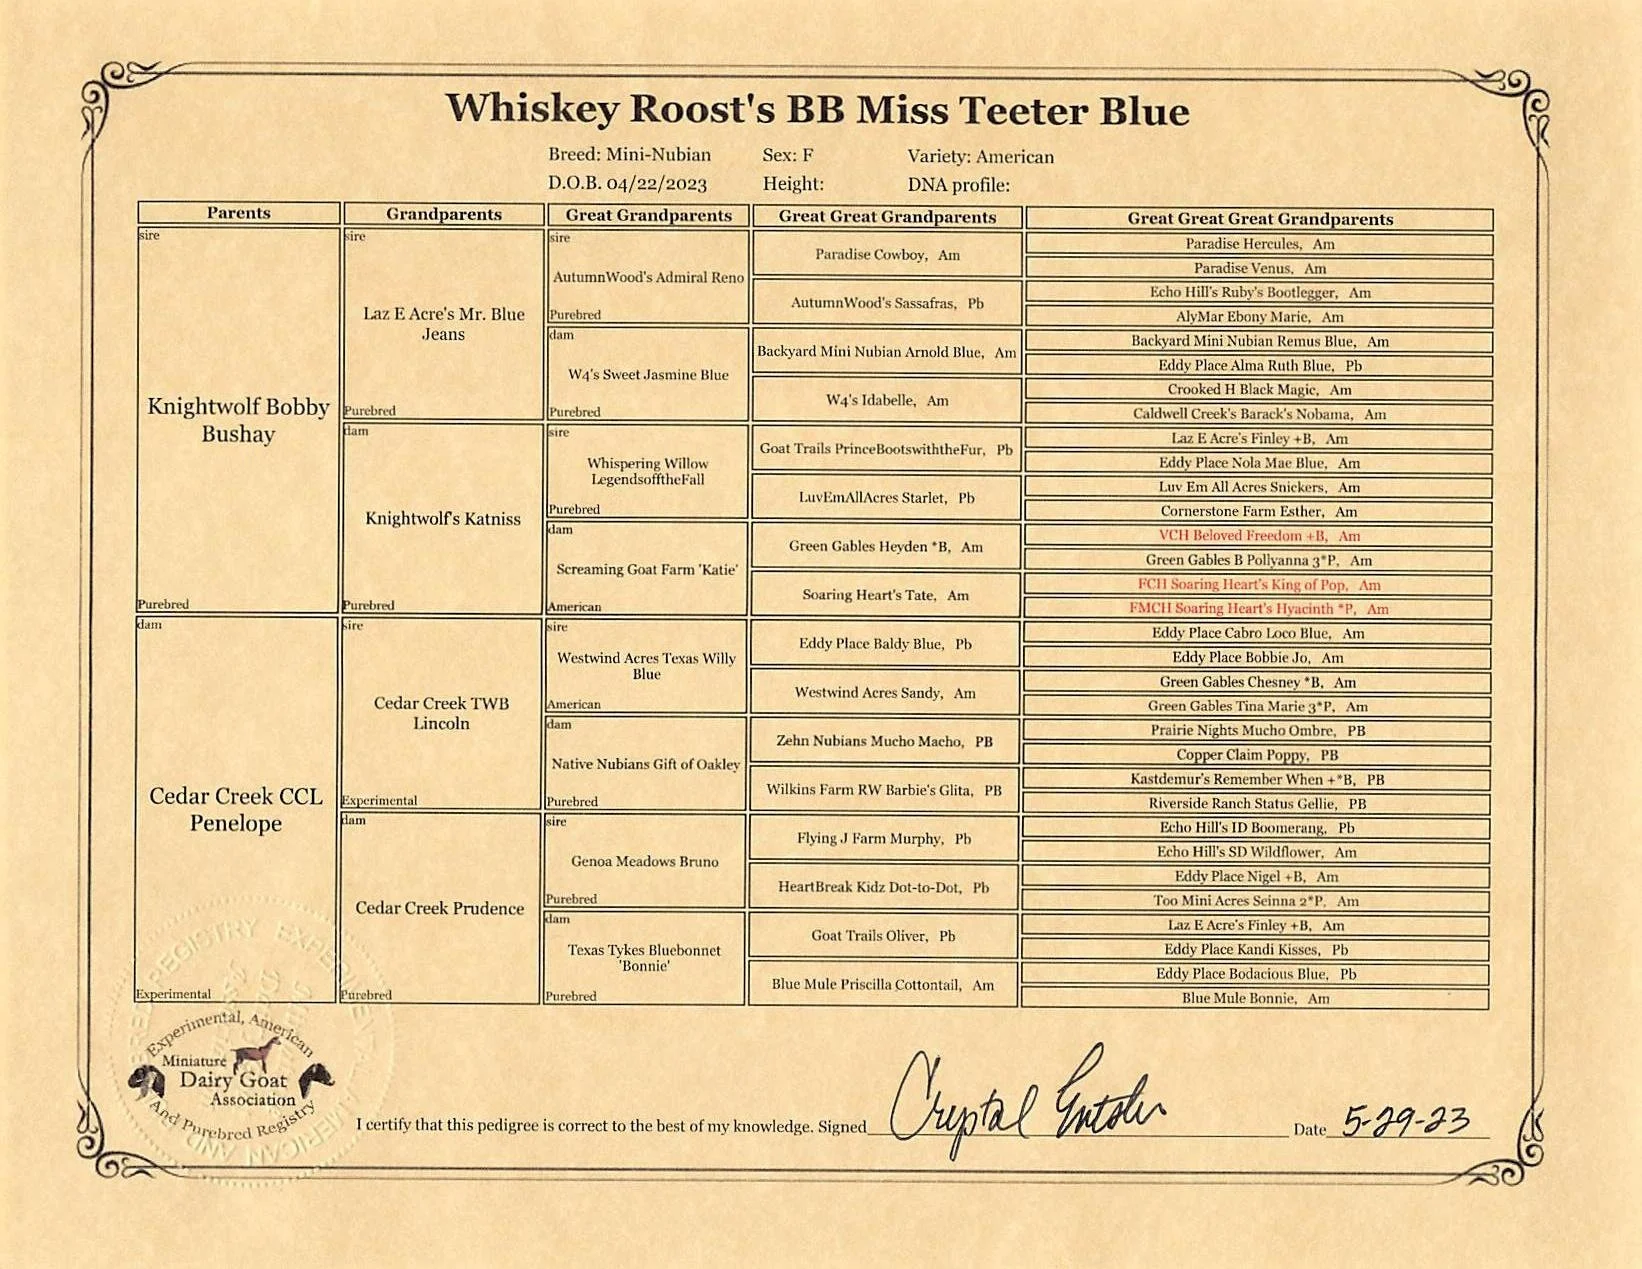 Whiskey Roost's BB Miss Teeter Blue
Breed: Mini-Nubian Sex: F Variety: American
D.O.B. 04/22/2023 Height: DNA profile:
Parents Grandparents Great Grandparents Great Great Grandparents Great Great Great Grandparents
sire
Knightwolf Bobby
Bushay
Purebred
dam
Cedar Creek CCL
Penelope
Experimental
sire
Laz E Acre's Mr. Blue
Jeans
Purebred
dam
Knightwolf's Katniss
Purebred
sire
Cedar Creek TWB
Lincoln
Experimental
dam
Cedar Creek Prudence
Purebred
sire
AutumnWood's Admiral Reno
Purebred
dam
W4's Sweet Jasmine Blue
Purebred
sire
Whispering Willow
LegendsofftheFall
Purebred
dam
Screaming Goat Farm 'Katie'
American
sire
Westwind Acres Texas Willy
Blue
American
dam
Native Nubians Gift of Oakley
Purebred
sire
Genoa Meadows Bruno
Purebred
dam
Texas Tykes Bluebonnet
'Bonnie'
Purebred
Paradise Cowboy, Am
AutumnWood's Sassafras, Pb
Backyard Mini Nubian Arnold Blue, Am
W4's Idabelle, Am
Goat Trails PrinceBootswiththeFur, Pb
LuvEmAllAcres Starlet, Pb
Green Gables Heyden *B, Am
Soaring Heart's Tate, Am
Eddy Place Baldy Blue, Pb
Westwind Acres Sandy, Am
Zehn Nubians Mucho Macho, PB
Wilkins Farm RW Barbie's Glita, PB
Flying J Farm Murphy, Pb
HeartBreak Kidz Dot-to-Dot, Pb
Goat Trails Oliver, Pb
Blue Mule Priscilla Cottontail, Am
Paradise Hercules, Am
Paradise Venus, Am
Echo Hill's Ruby's Bootlegger, Am
AlyMar Ebony Marie, Am
Backyard Mini Nubian Remus Blue, Am
Eddy Place Alma Ruth Blue, Pb
Crooked H Black Magic, Am
Caldwell Creek's Barack's Nobama, Am
Laz E Acre's Finley +B, Am
Eddy Place Nola Mae Blue, Am
Luv Em All Acres Snickers, Am
Cornerstone Farm Esther, Am
VCH Beloved Freedom +B, Am
Green Gables B Pollyanna 3*P, Am
FCH Soaring Heart's King of Pop, Am
FMCH Soaring Heart's Hyacinth *P, Am
Eddy Place Cabro Loco Blue, Am
Eddy Place Bobbie Jo, Am
Green Gables Chesney *B, Am
Green Gables Tina Marie 3*P, Am
Prairie Nights Mucho Ombre, PB
Copper Claim Poppy, PB
Kastdemur's Remember When +*B, PB
Riverside Ranch Status Gellie, PB
Echo Hill's ID Boomerang, Pb
Echo Hill's SD Wildflower, Am
Eddy Place Nigel +B, Am
Too Mini Acres Seinna 2*P, Am
Laz E Acre's Finley +B, Am
Eddy Place Kandi Kisses, Pb
Eddy Place Bodacious Blue, Pb
Blue Mule Bonnie, Am
Experimental, American
Miniature
Dairy Goat
Association
And Purebred Registry
I certify that this pedigree is correct to the best of my knowledge. Signed Crystal Date 5-29-23